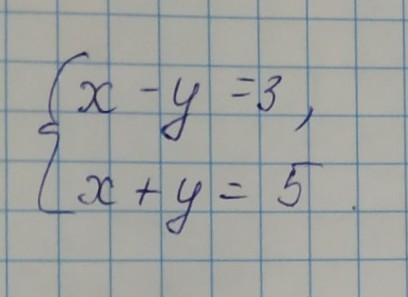 x - y = 3,
x + y = 5.